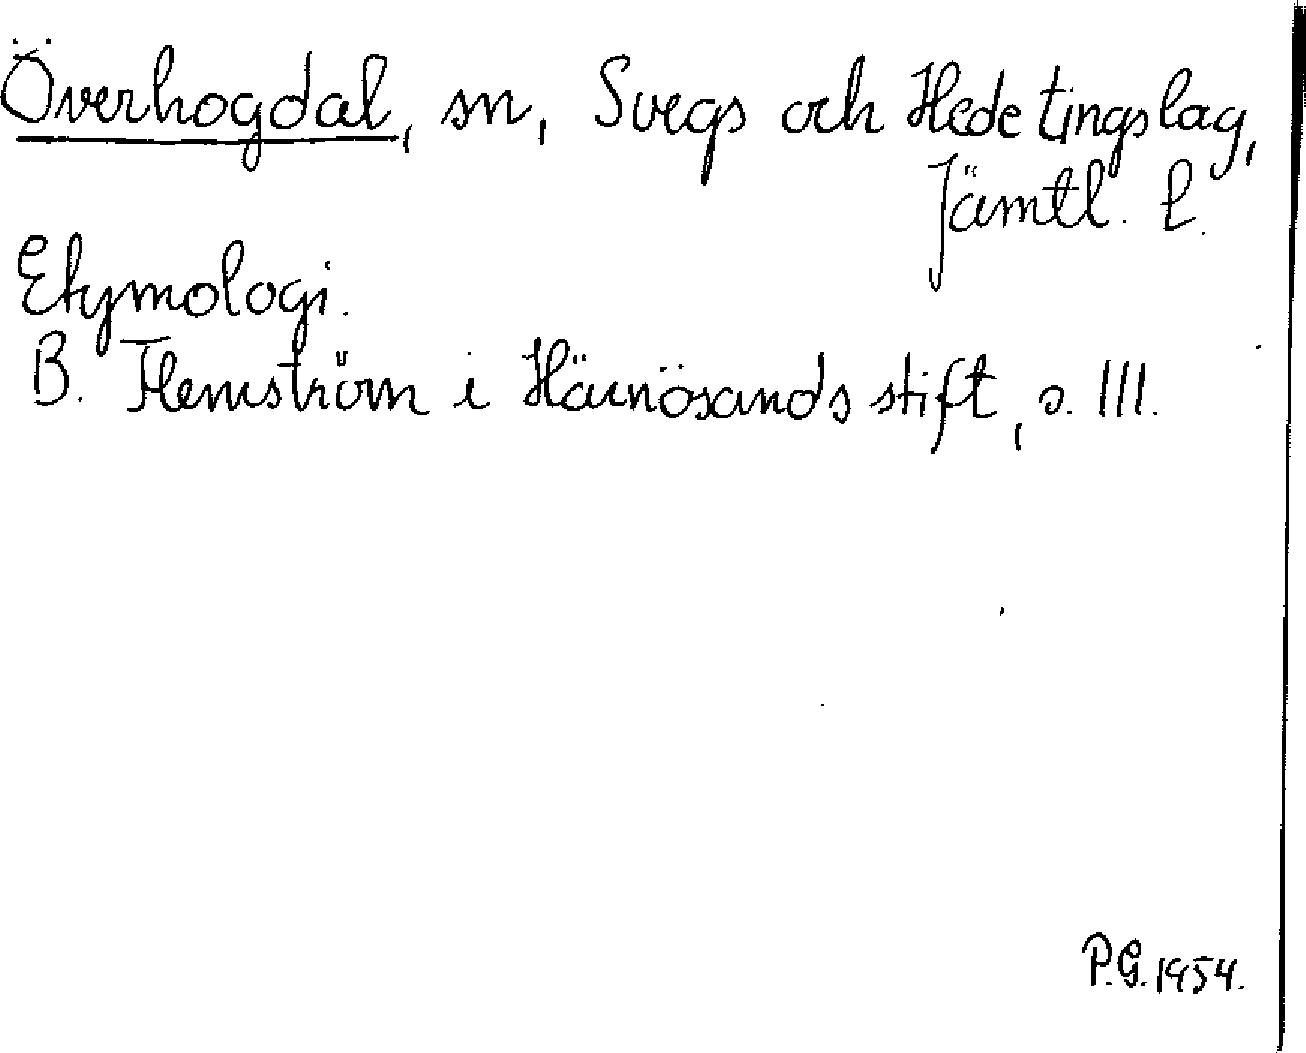 Överhogdal, sn, Svegs och Hede tingslag,
Jämtl. l.
Etymologi.
B. Flemström i Härnösands stift, s. 111.
P.G. 1954.